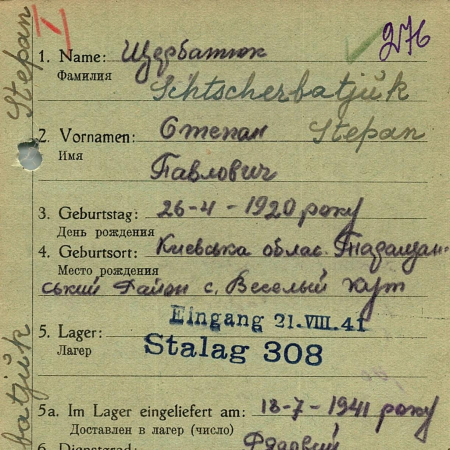 276
1. Name: Щербатюк
Фамилия
Schtscherbatjuk
2. Vornamen: Степан Stepan
Имя
Павлович
3. Geburtstag: 26-4-1920 року
День рождения
4. Geburtsort: Киевська облас.
Место рождения
ський Район с. Веселый кут
Eingang 21.VIII.41
5. Lager: Stalag 308
Лагер
5a. Im Lager eingeliefert am: 18-7-1941 року
Доставлен в лагер (число)
6. Dienstgrad: Рядовий
Stepan
batjuk